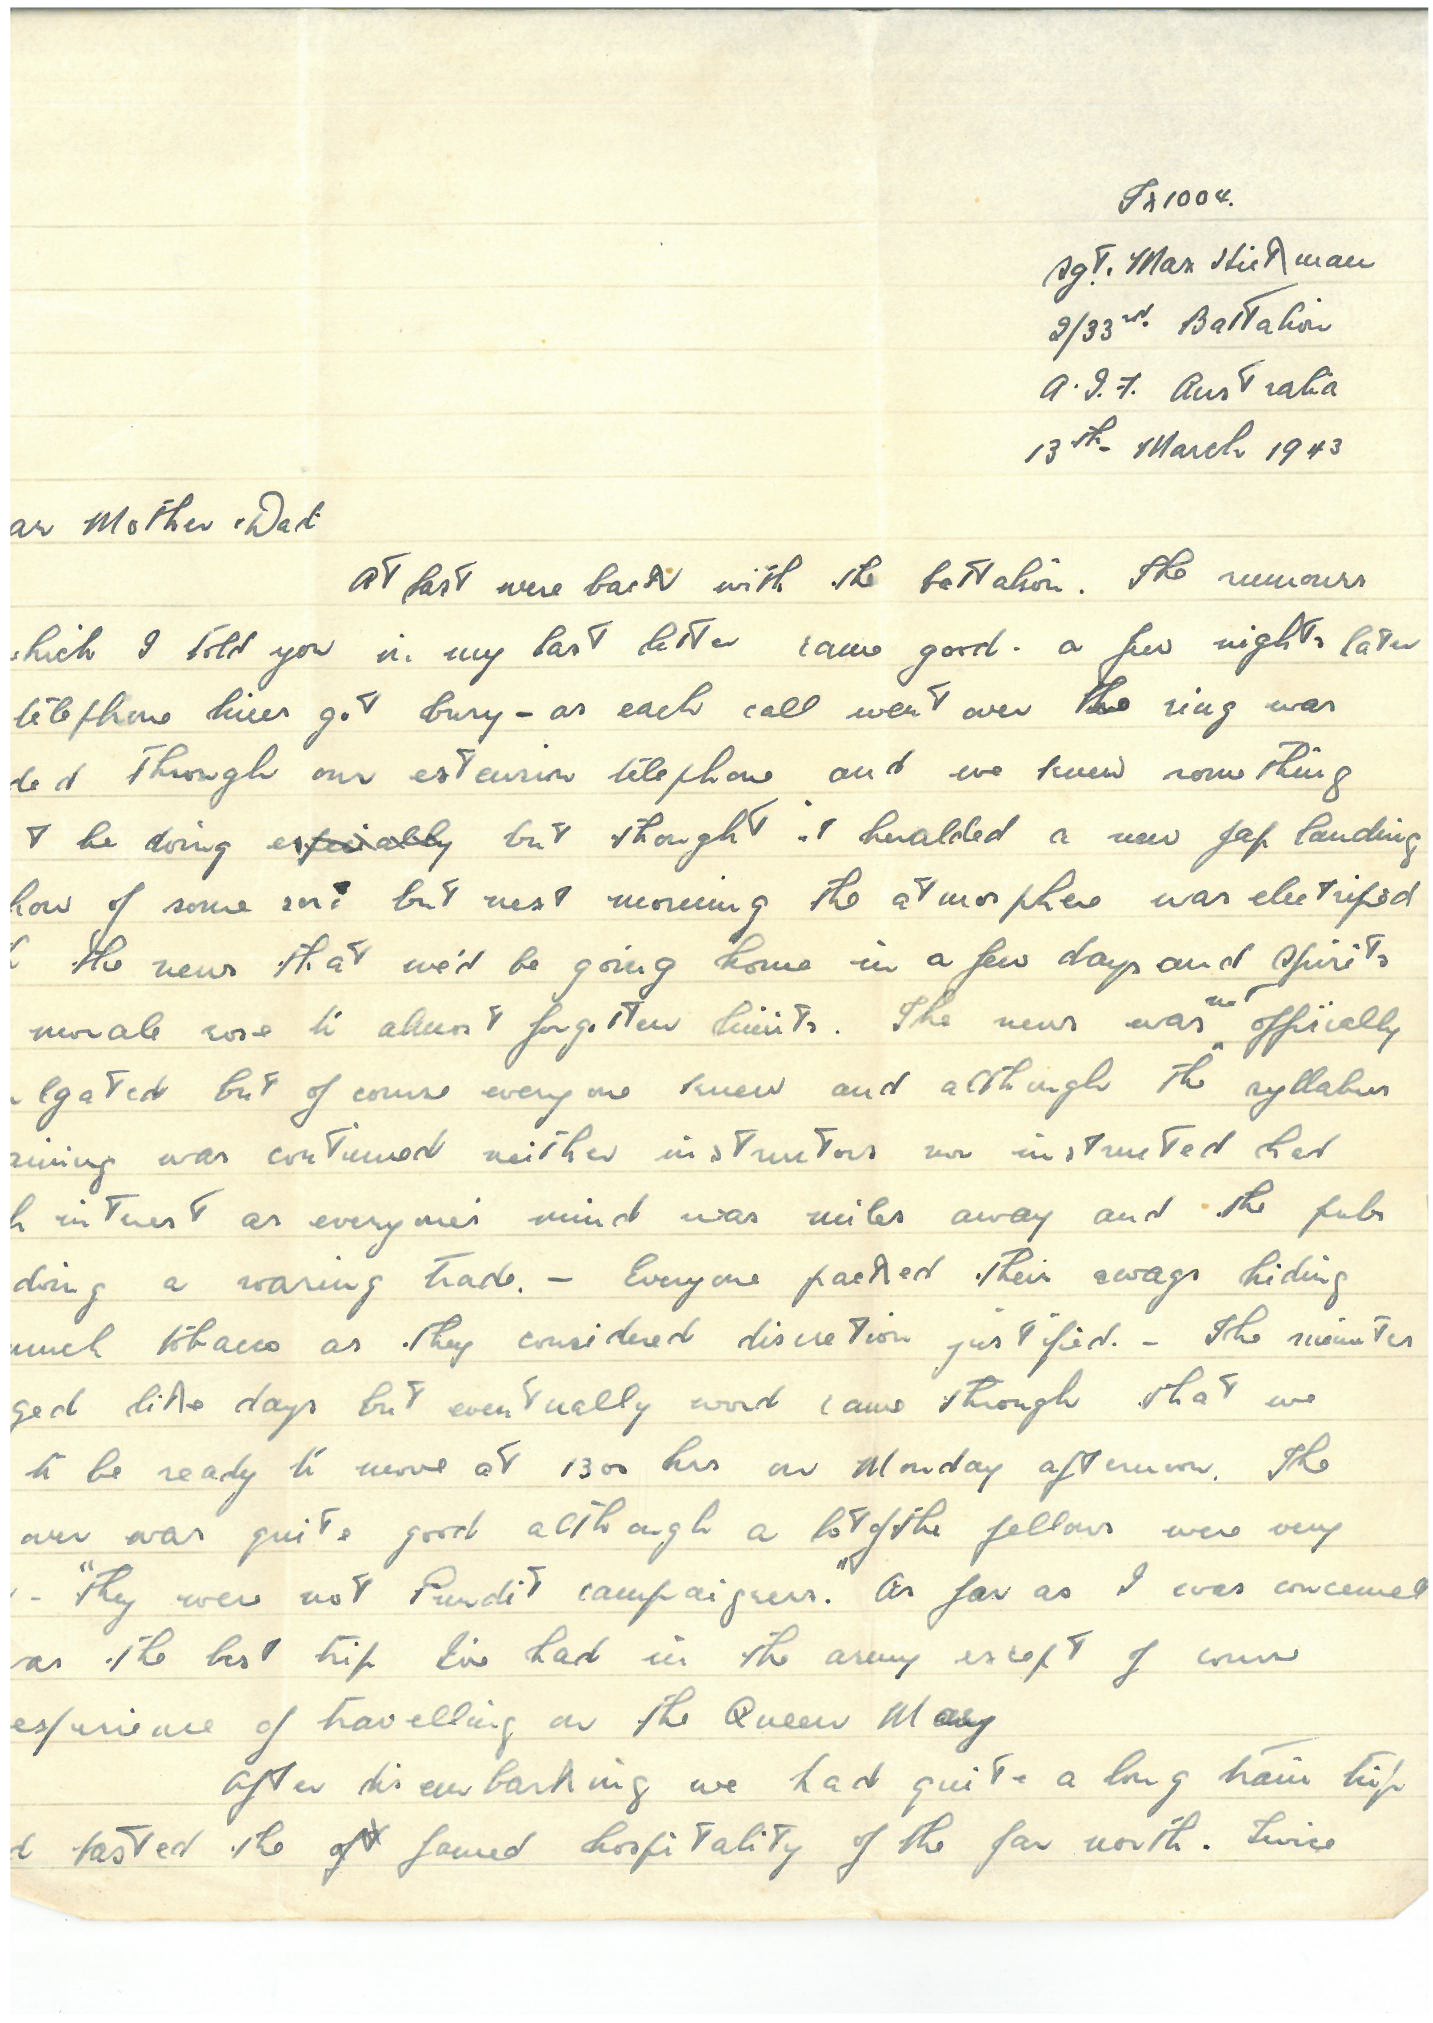 Tx1004.
Sgt. Max Hickman
2/33rd. Battalion
A.I.F. Australia
13th March 1943
ar Mother & Dad
At last were back with the battalion. The rumours
hich I told you in my last letter came good. a few nights later
telephone lines got busy - as each call went over the ring was
ded through our extension telephone and we knew something
t be doing especially but thought it heralded a new Jap landing
how of some sort but next morning the atmosphere was electrified
the news that we'd be going home in a few days and spirits
morale rose to almost forgotten limits. The news was not offically
lgated but of course everyone knew and although the syllabus
aining was continued neither instructors nor instructed had
h interest as everyone's mind was miles away and the pubs
doing a roaring trade. - Everyone packed their swags hiding
much tobacco as they considered discretion justified. - The minutes
ged like days but eventually word came through that we
to be ready to move at 1300 hrs on Monday afternoon. The
over was quite good although a lot of the fellows were very
- "They were not Pundit campaigners." As far as I was concerned
as the best trip I've had in the army except of course
experience of travelling on the Queen Mary
After disembarking we had quite a long train trip
d tasted the oft famed hospitality of the far north. Twice